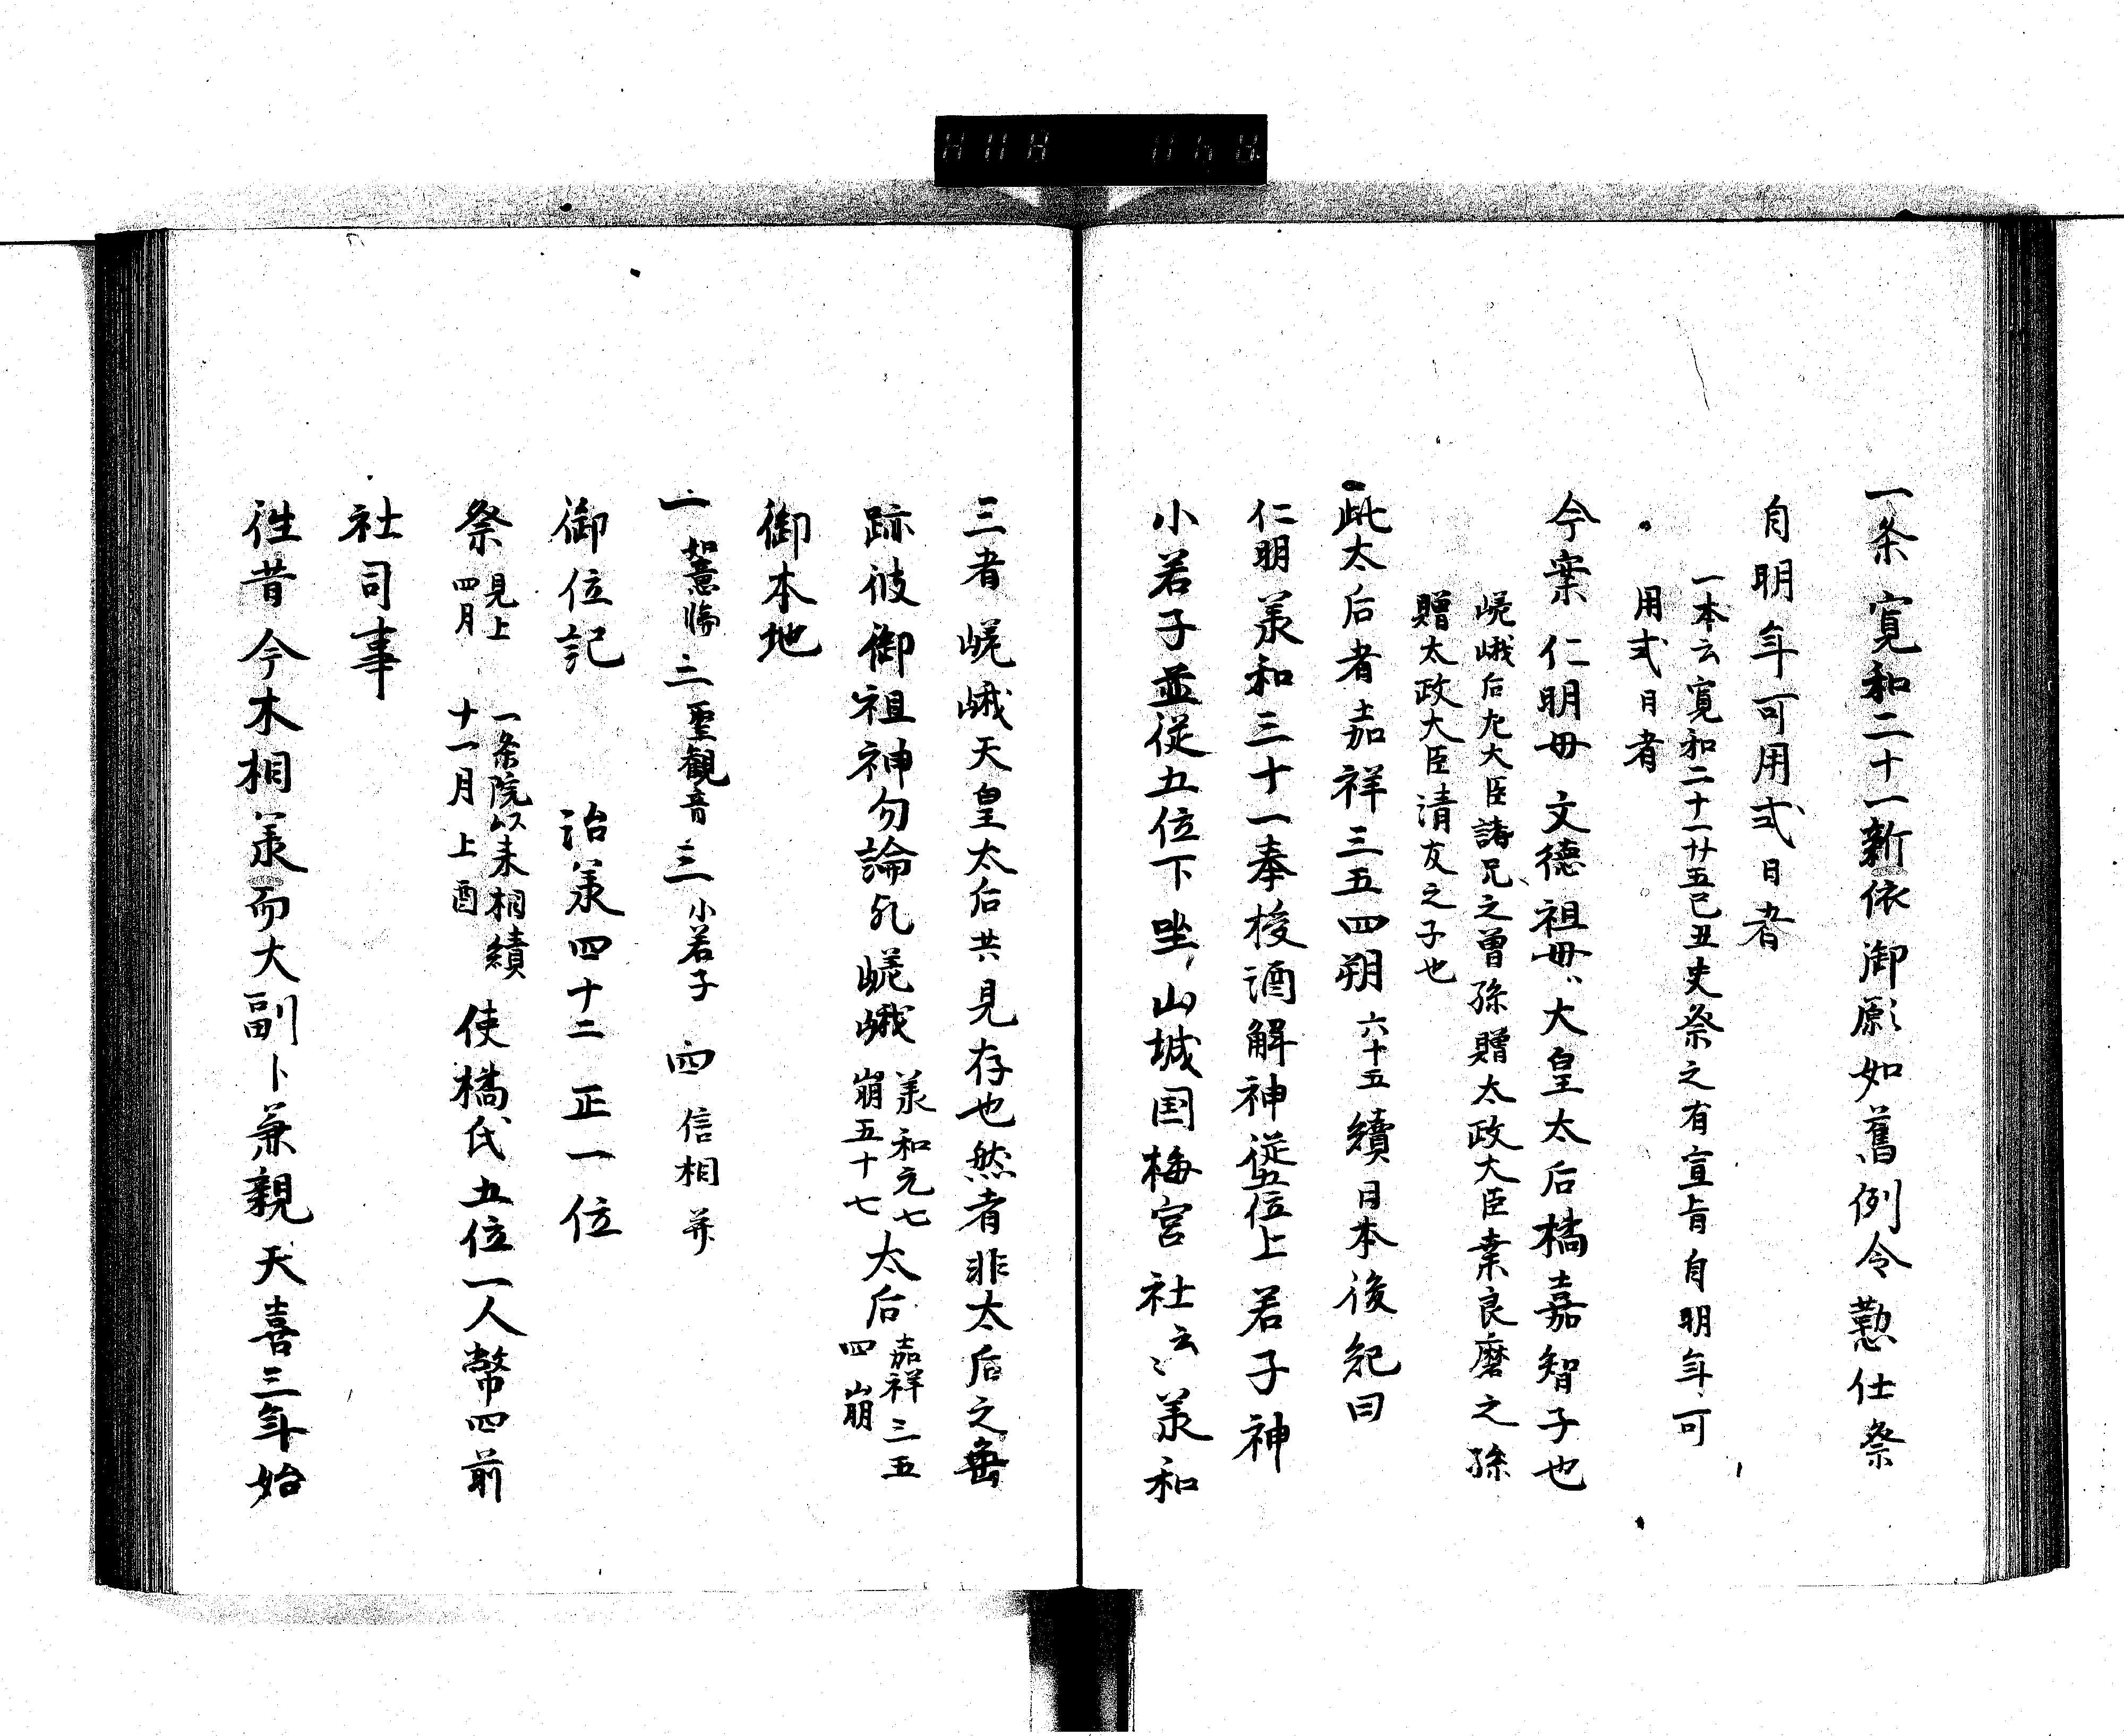 一条寛和二十一新依御願如舊例令懃仕祭
自明年可用式日者
一本云寛和二十一廿五己丑史祭之有宣旨自明年可
用式日者
今案仁明母文德祖母大皇太后橘嘉智子也
嵯峨后左大臣諸兄之曽孫贈太政大臣奈良麿之孫
贈太政大臣清友之子也
此太后者嘉祥三五四朔六十五續日本後紀曰
仁明承和三十一奉授酒解神從五位上若子神
小若子並従五位下坐山城国梅宮社云〻承和
三者嵯峨天皇太后共見存也然者非太后之垂
跡彼御祖神勿論乱嵯峨承和元七
崩五十七太后嘉祥三五
四崩
御本地
一如意輪二聖観音三小若子四信相并
御位記治承四十二正一位
祭見上
四月一条院以来相續
十一月上酉使橘氏五位一人幣四前
社司事
往昔今木相承而大副卜兼親天喜三年始